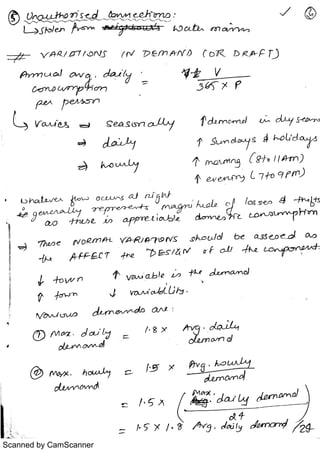 ⑤ Unauthorised connections:
↳ stolen from water mains
⇒ VARIATIONS IN DEMAND (OR DRAFT)
Annual avg. daily consumption per person = V / 365 × P
↳ Varies ⇒ seasonally ↑demand in dry season
⇒ daily ↑ Sundays & holidays
⇒ hourly ↑ morning (8 to 11AM)
↑ evening (7 to 9 PM)
• whatever flow occurs at night
is generally represents magnitude of losses & thefts
as there is appreciable domestic consumption
⇒ These NORMAL VARIATIONS should be assessed as
the AFFECT the DESIGN of all the components.
↓ town ↑ variable is the demand
↑ town ↓ variability.
Various demands are:
① Max. daily demand = 1.8 × Avg. daily demand
② Max. hourly demand = 1.5 × Avg. hourly demand
= 1.5 × (Max. daily demand / 24)
= 1.5 × 1.8 Avg. daily demand / 24
Scanned by CamScanner